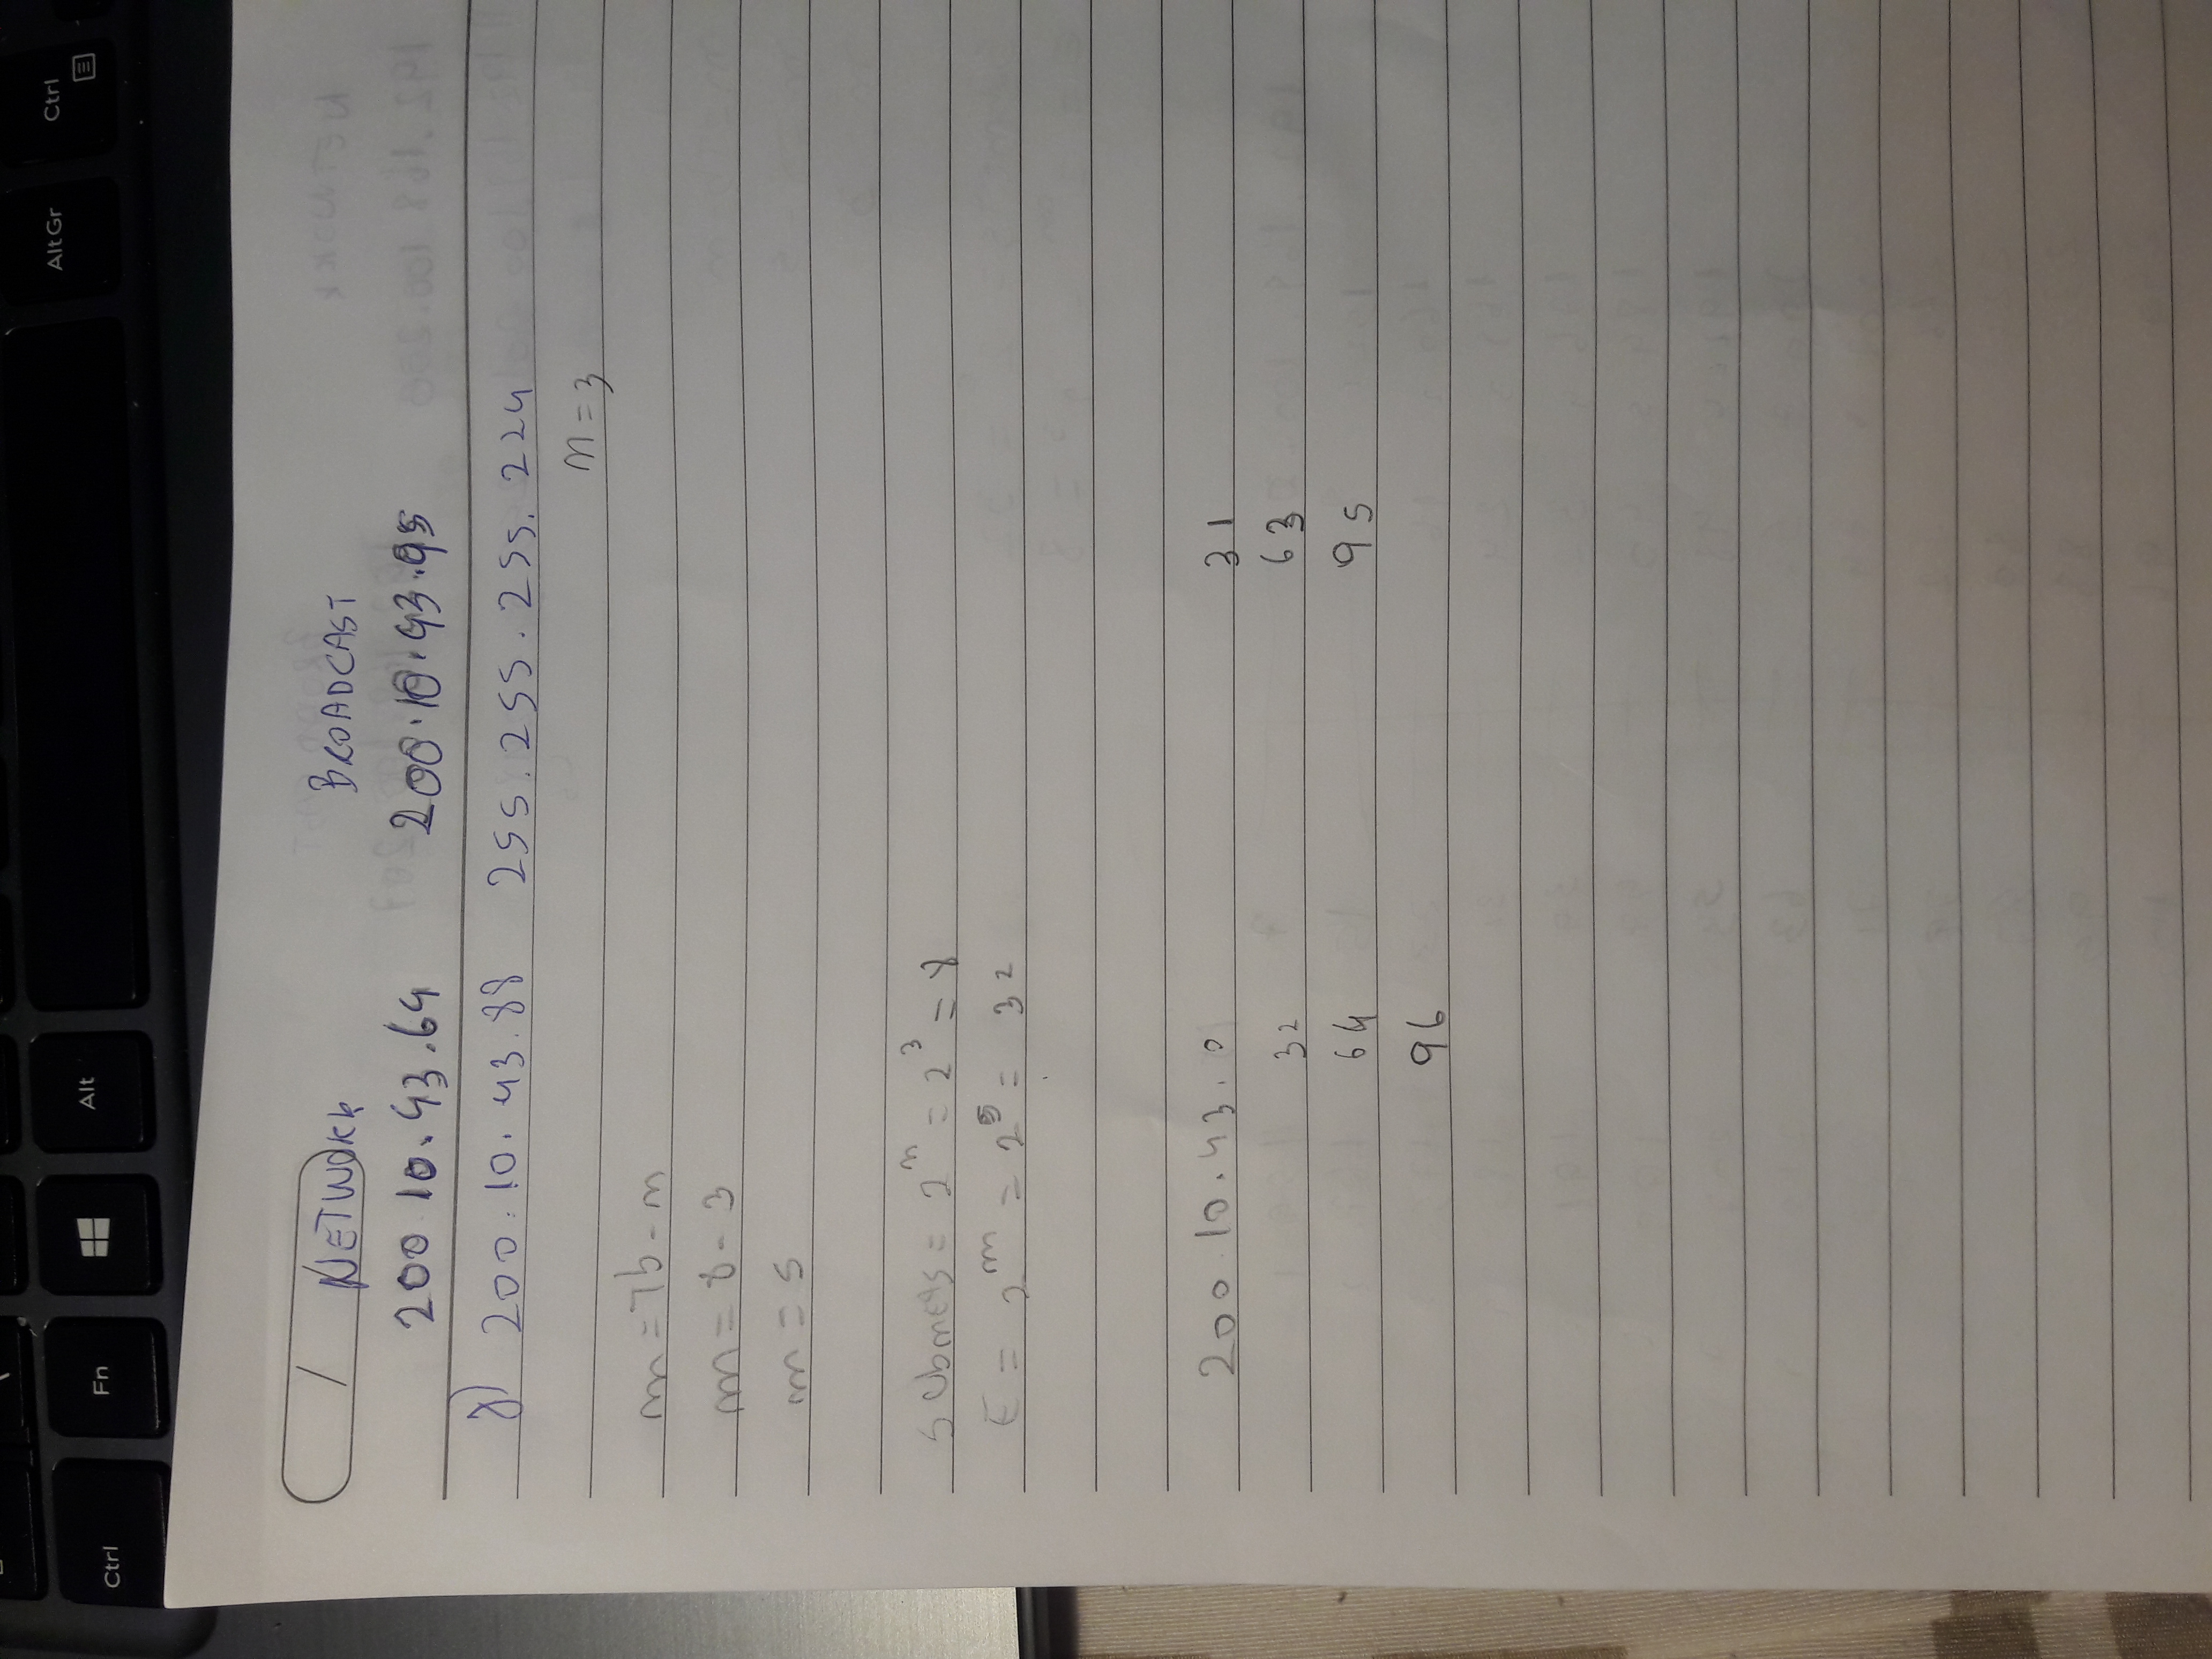 Ctrl Fn Alt AltGr Ctrl
/ NETWORK BROADCAST
200 10.43.64 200.10.43.95
8) 200.10.43.88 255.255.255.224
n=3
m=Tb-n
m=8-3
m=5
Subnets = 2^n = 2^3 = 8
E = 2^m = 2^5 = 32
200 10.43.0 31
32 63
64 95
96